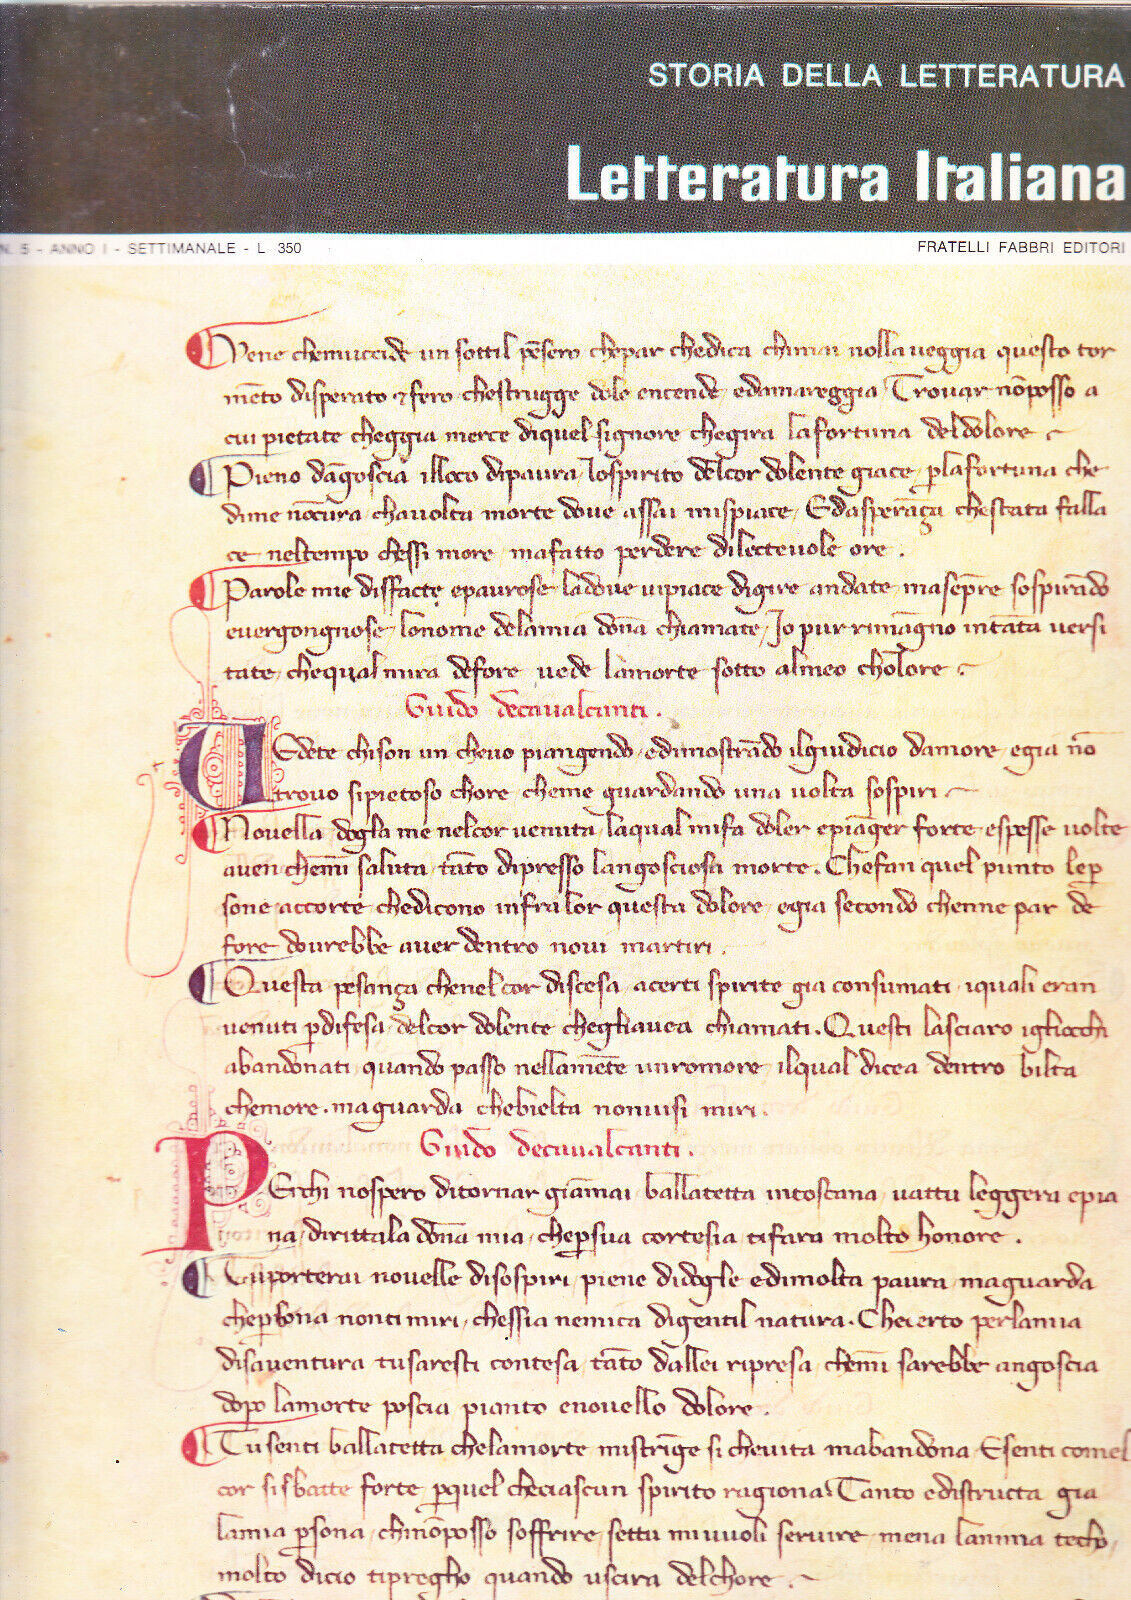 STORIA DELLA LETTERATURA
Letteratura Italiana
N. 5 - ANNO I - SETTIMANALE - L. 350
FRATELLI FABBRI EDITORI
Vene chemuccide un sottil pēsero chepar chedica chimai nollaveggia questo tor
mēto disperato ⁊ fero chestrugge dole encende edamareggia Trovar nōposso a
cui pietate cheggia merce diquel signore chegira lafortuna deldolore
Pieno dāgoscia illoco dipaura lospirito delcor dolente giace plafortuna che
dime nōcura chavolta morte dove assai mispiace Edasperāça chestata falla
ce neltempo chessi more mafatto perdere dilectevole ore.
Parole mie disfacte epaurose ladove vipiace digire andate masepre sospirādo
evergongnose lonome delamia dōna chiamate Jo pur rimāgno intāta versi
tate chequal mira defore vede lamorte sotto almeo cholore
Guido decavalcanti.
Vedete chison un chevo piangendo edimostrādo ilgiudicio damore egia nō
trovo sipietoso chore cheme guardando una volta sospiri
Novella dogla me nelcor venuta laqual mifa doler epiāger forte espesse volte
aven chemi saluta tāto dipresso langosciosa morte. Chefan quel punto leper
sone accorte chedicono infralor questa dolore egia secondo chenne par de
fore dovrebbe aver dentro novi martiri.
Questa pesança chenelcor discesa acerti spirite gia consumati iquali eran
venuti pdifesa delcor dolente chegliavea chiamati. Questi lasciaro igliocchi
abandonati quando passo nellamēte unromore ilqual dicea dentro bilta
chemore. maguarda chebielta nonvisi miri.
Guido decavalcanti.
PErchi nospero ditornar giāmai ballatetta intoscana vattu leggera epia
na dirittala dōna mia chepsua cortesia tifara molto honore.
Tuporterai novelle disospiri piene didogle edimolta paura maguarda
chepsona nonti miri chessia nemica digentil natura. Checerto perlamia
disaventura tusaresti contesa tāto dallei ripresa chemi sarebbe angoscia
dopo lamorte poscia pianto enovello dolore.
Tusenti ballatetta chelamorte mistrīge si chevita mabandona Esenti comel
cor sisbatte forte pquel checiascun spirito ragiona Tanto edistructa gia
lamia psona chinōposso soffrire settu mivuoli servire mena lanima techo
molto dicio tipregho quando uscira delchore.